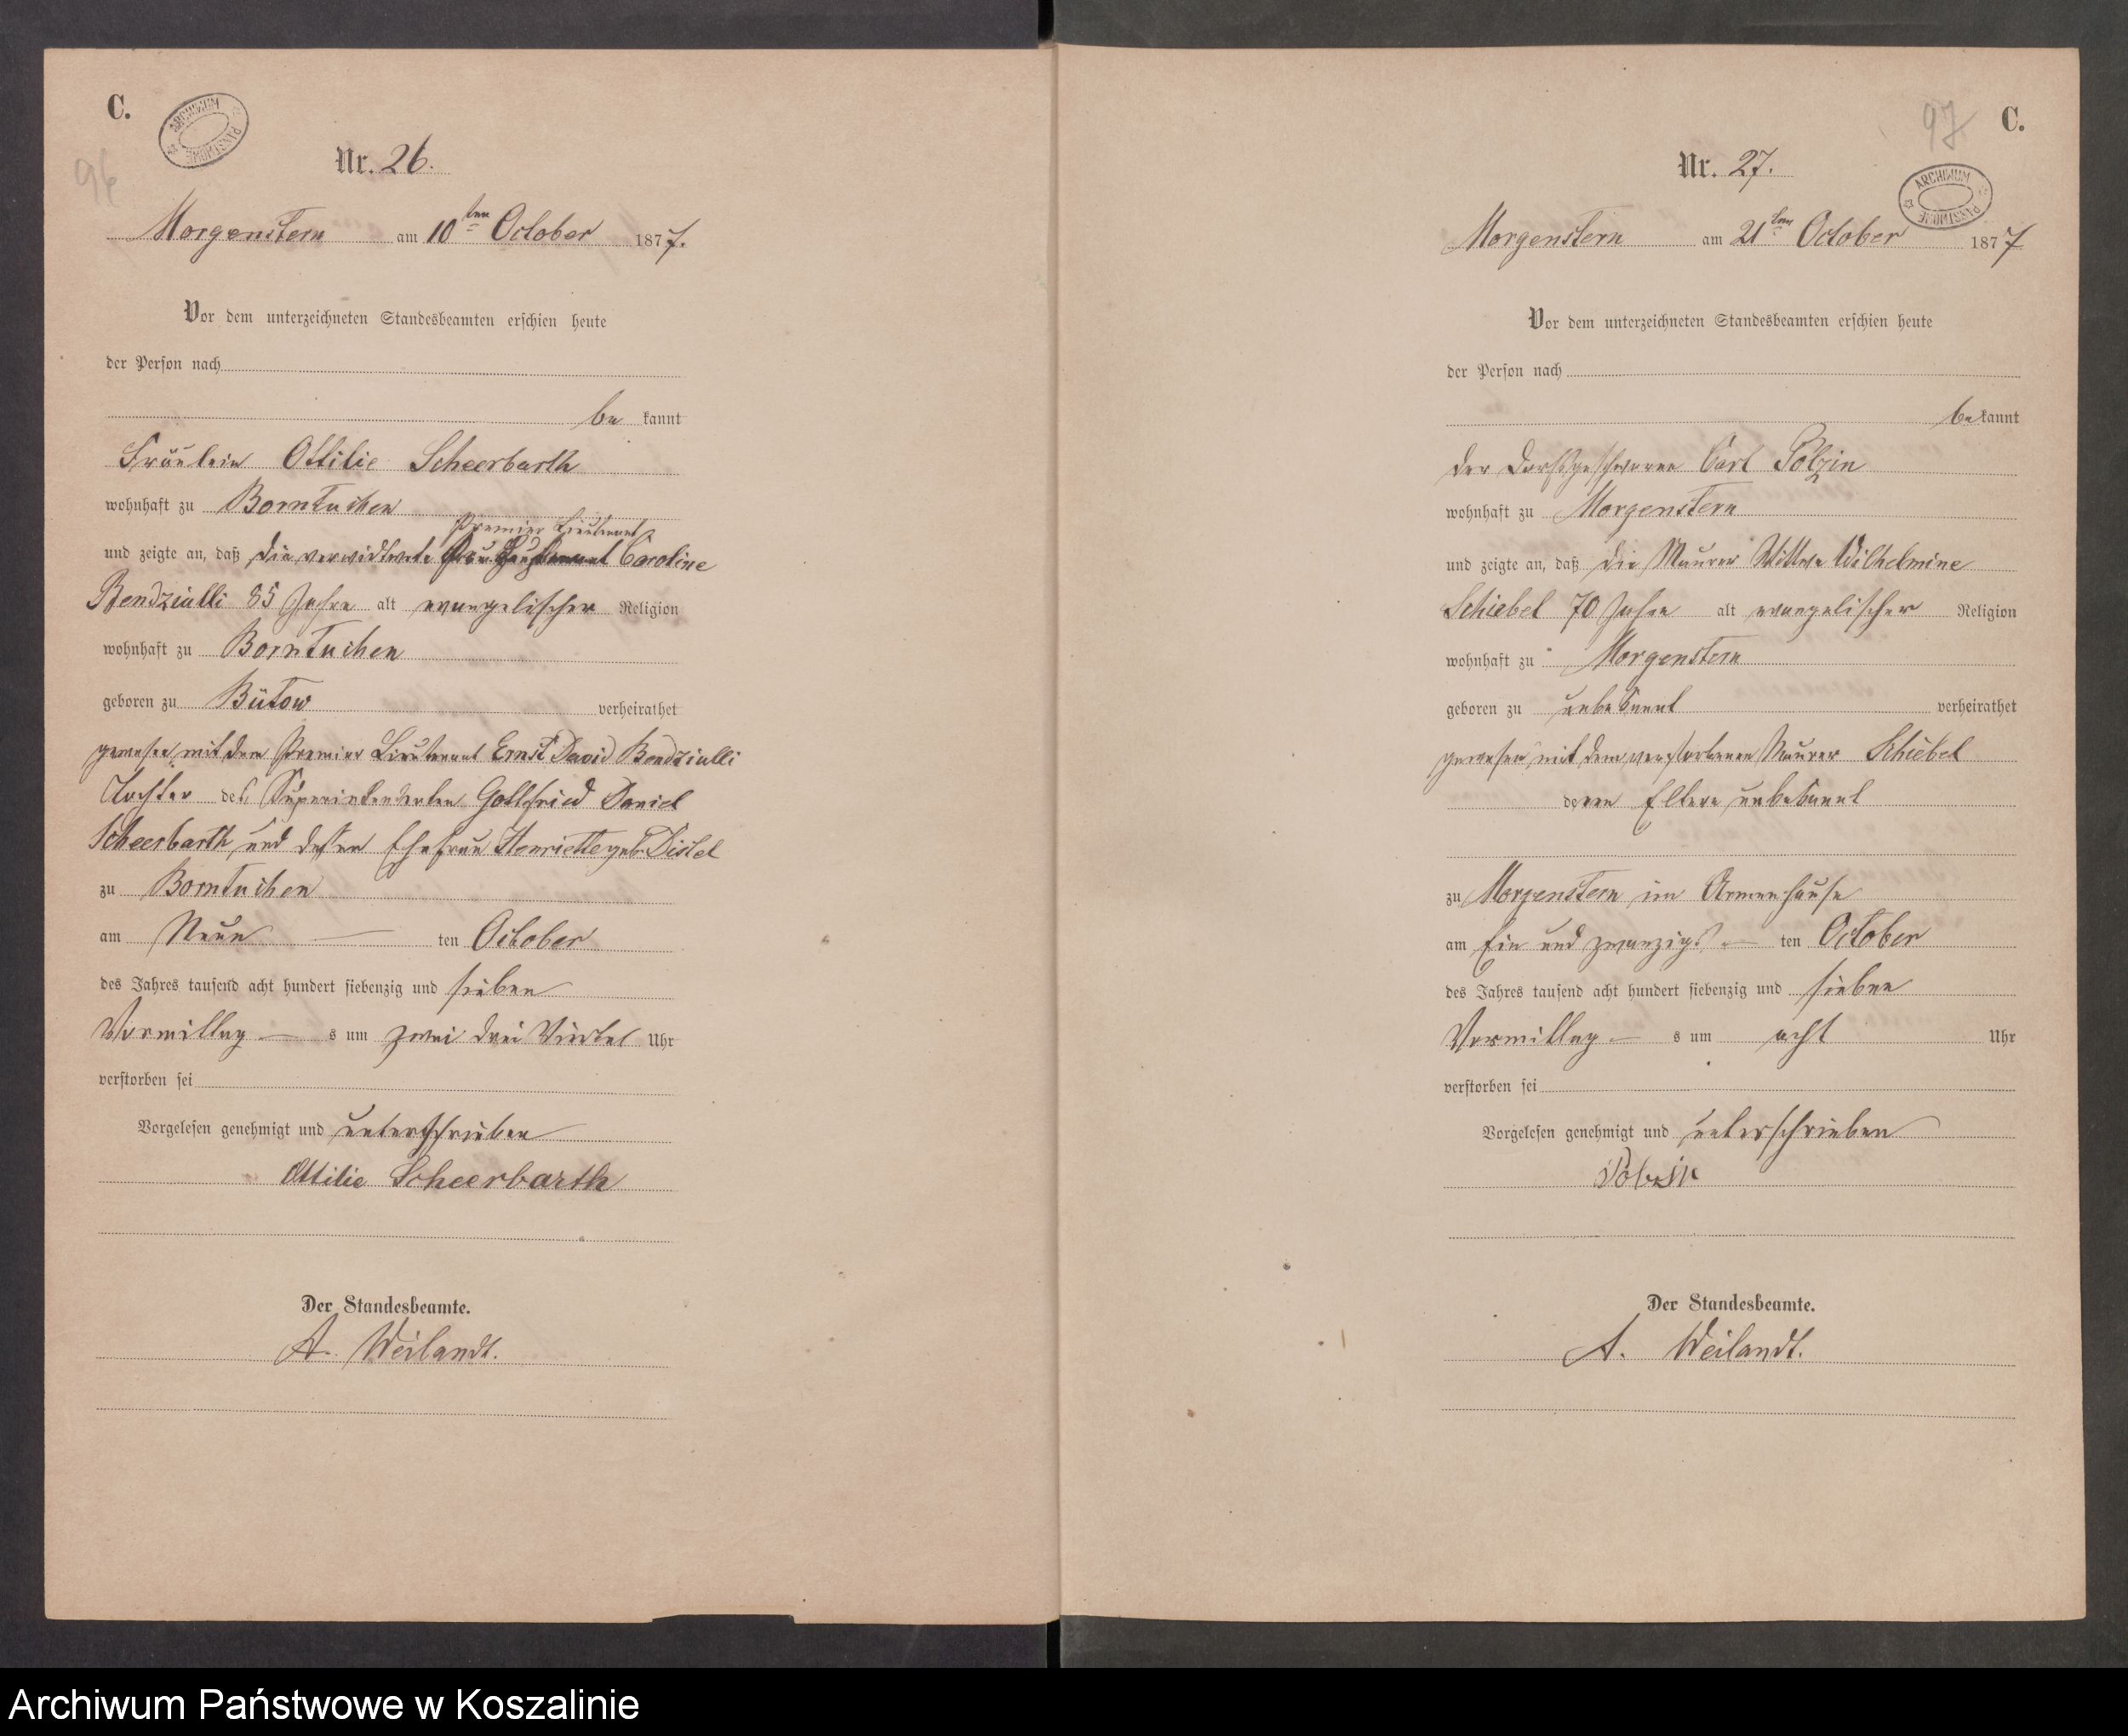 C.
ARCHIWUM PAŃSTWOWE
96
Nr. 26.
Morgenstern am 10ten October 1877.
Vor dem unterzeichneten Standesbeamten erschien heute
der Person nach
be kannt
Fräulein Ottilie Scheerbarth
wohnhaft zu Borntuchen
Premier Lieutenant
und zeigte an, daß die verwidtwete Frau Caroline
Bendziulli 85 Jahre alt evangelischer Religion
wohnhaft zu Borntuchen
geboren zu Bütow verheirathet
gewesen mit dem Premier Lieutenant Ernst David Bendziulli
Tochter des Superintendenten Gottfried Daniel
Scheerbarth und dessen Ehefrau Henriette geb. Distel
zu Borntuchen
am Neun ten October
des Jahres tausend acht hundert siebenzig und sieben
Vormittag s um zwei drei Viertel Uhr
verstorben sei
Vorgelesen genehmigt und unterschrieben
Ottilie Scheerbarth
Der Standesbeamte.
A. Weilandt.
97
C.
ARCHIWUM PAŃSTWOWE
Nr. 27.
Morgenstern am 21ten October 1877
Vor dem unterzeichneten Standesbeamten erschien heute
der Person nach
be kannt
der Dorfsgeschworene Carl Polzin
wohnhaft zu Morgenstern
und zeigte an, daß die Maurer Wittwe Wilhelmine
Schiebel 70 Jahre alt evangelischer Religion
wohnhaft zu Morgenstern
geboren zu unbekannt verheirathet
gewesen mit dem verstorbenen Maurer Schiebel
deren Eltern unbekannt
zu Morgenstern im Armenhause
am Ein und zwanzigs ten October
des Jahres tausend acht hundert siebenzig und sieben
Vormittag s um acht Uhr
verstorben sei
Vorgelesen genehmigt und unterschrieben
Polzin
Der Standesbeamte.
A. Weilandt.
Archiwum Państwowe w Koszalinie